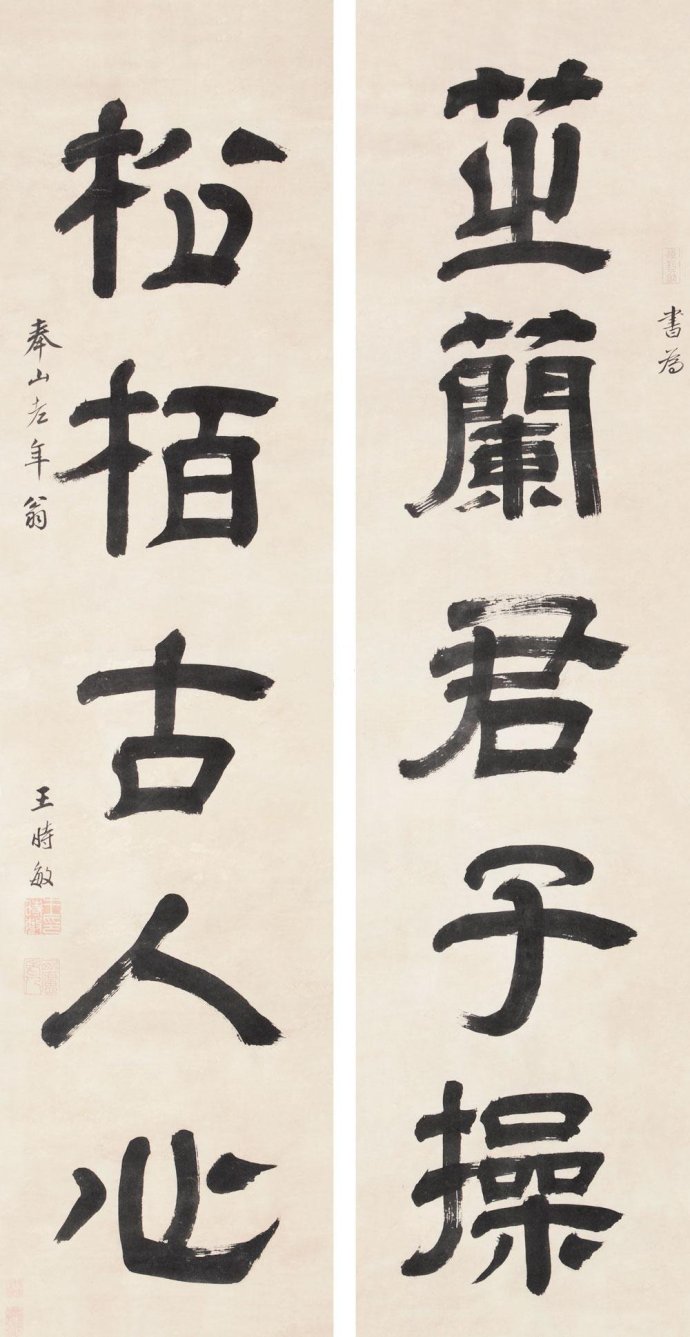 書為
芝蘭君子操
松栢古人心
奉山老年翁
王時敏